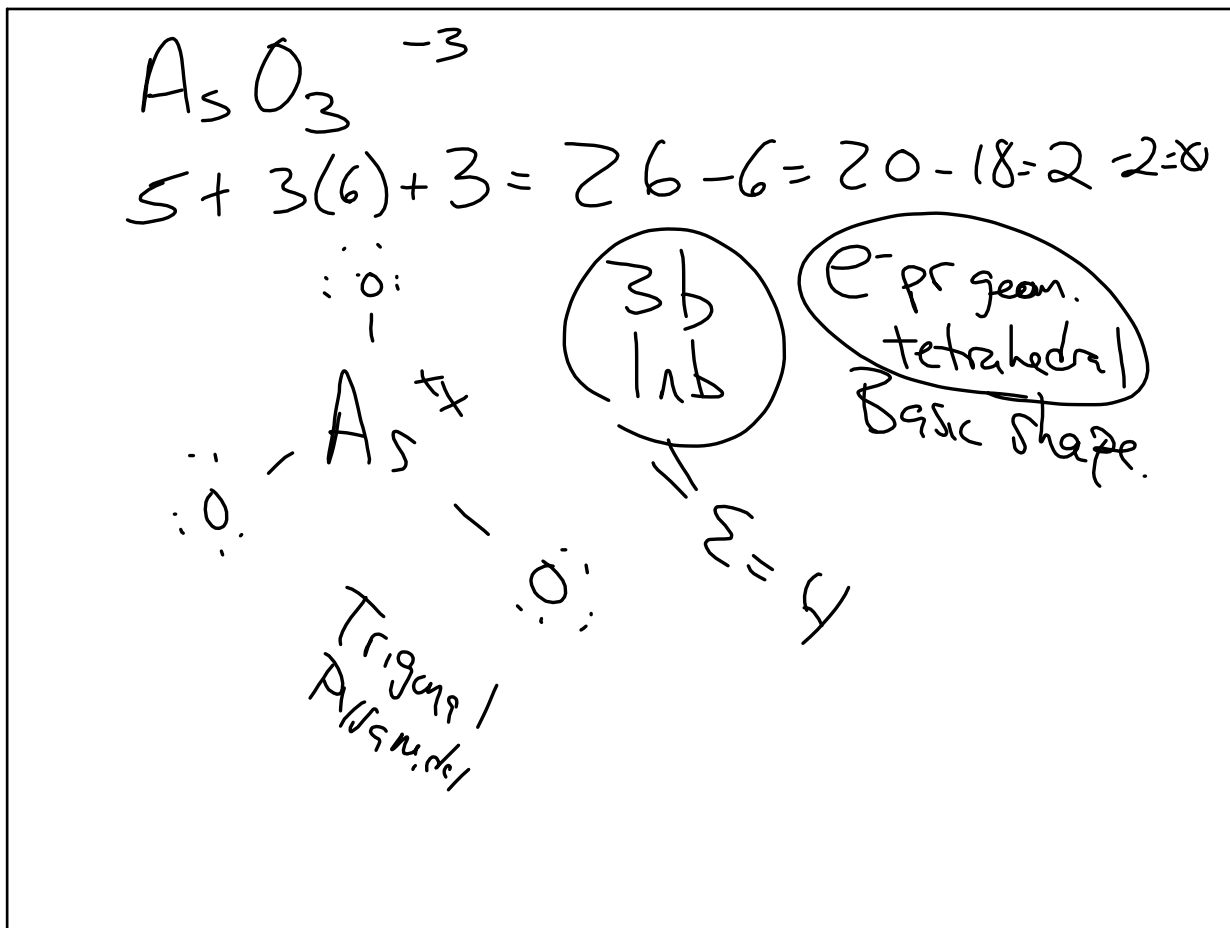 AsO₃⁻³
5 + 3(6) + 3 = 26 - 6 = 20 - 18 = 2 - 2 = 0
3b
1nb
e⁻ pr geom.
tetrahedral
Basic shape.
:O:
As
:O
O:
Σ = 4
Trigonal
Pyramidal